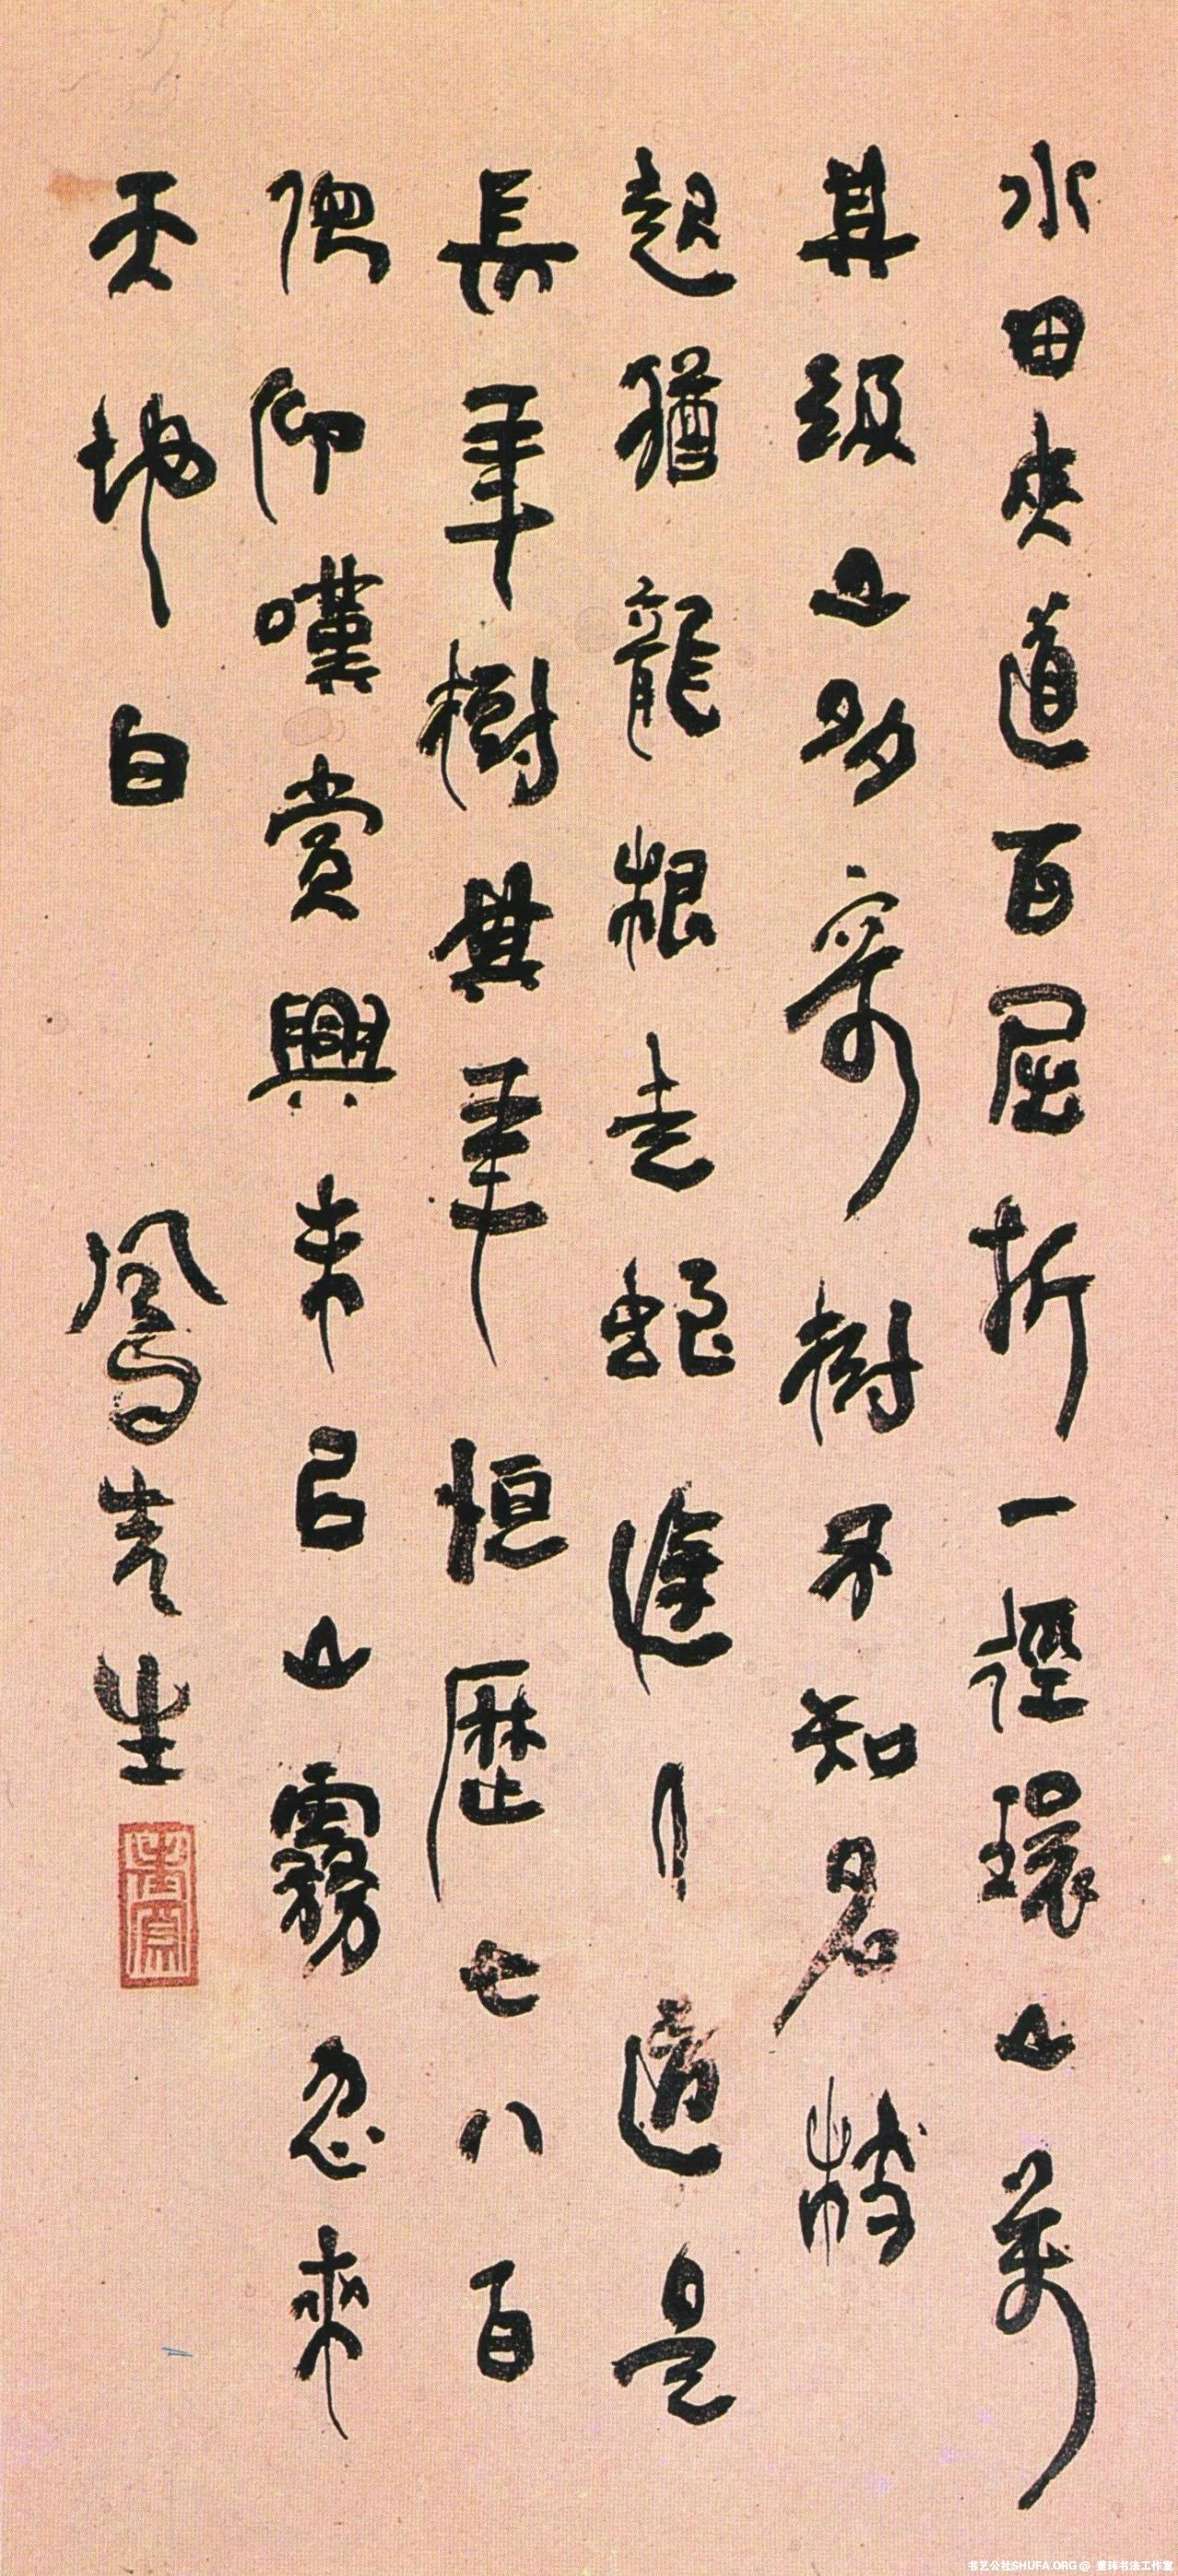 水田夾道百屈折一徑環山萬
其級山多奇樹不知名枝
起猶龍根走 進 遁是
長年樹其年恒歷七八百
俛仰嘆賞興未已山霧忽來
天地白
鳳先生
书艺公社SHUFA.ORG@ 重玮书法工作室